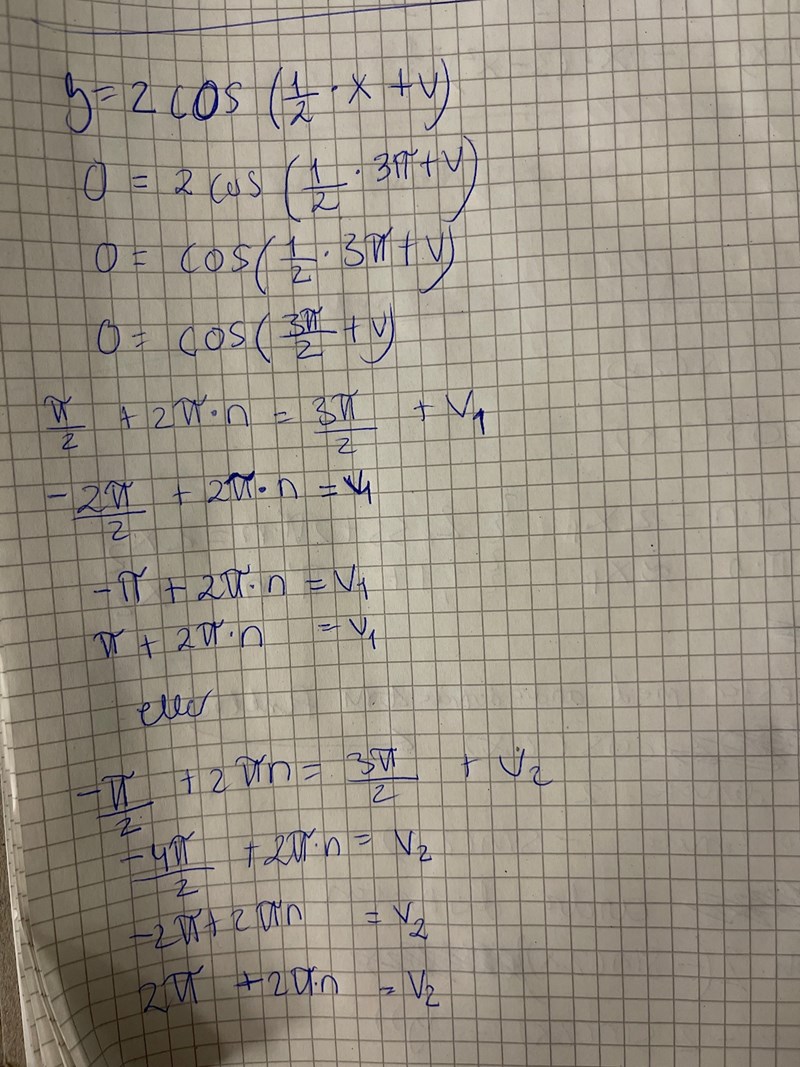 y = 2 cos (1/2 · x + v)
0 = 2 cos (1/2 · 3π + v)
0 = cos (1/2 · 3π + v)
0 = cos (3π/2 + v)
π/2 + 2π · n = 3π/2 + v₁
- 2π/2 + 2π · n = v₁
-π + 2π · n = v₁
π + 2π · n = v₁
eller
-π/2 + 2πn = 3π/2 + v₂
-4π/2 + 2π · n = v₂
-2π + 2πn = v₂
2π + 2π·n = v₂